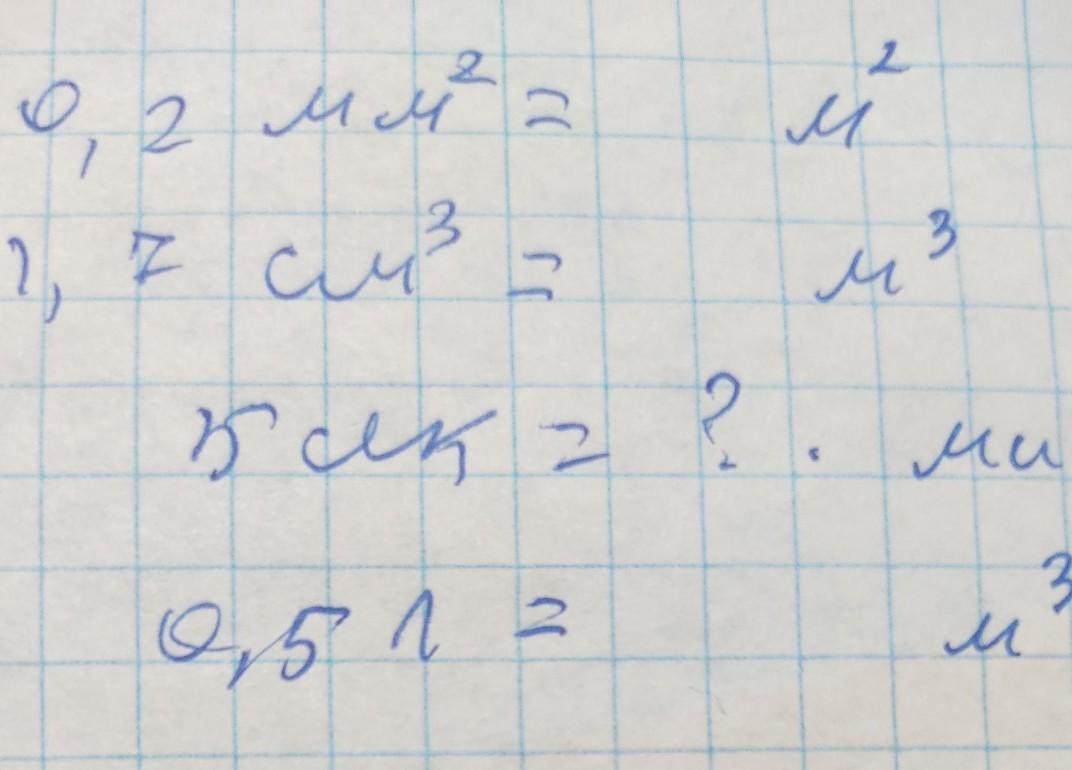 0,2 мм² = м²
1,7 см³ = м³
5 = ? . ми
0,5 л = м³